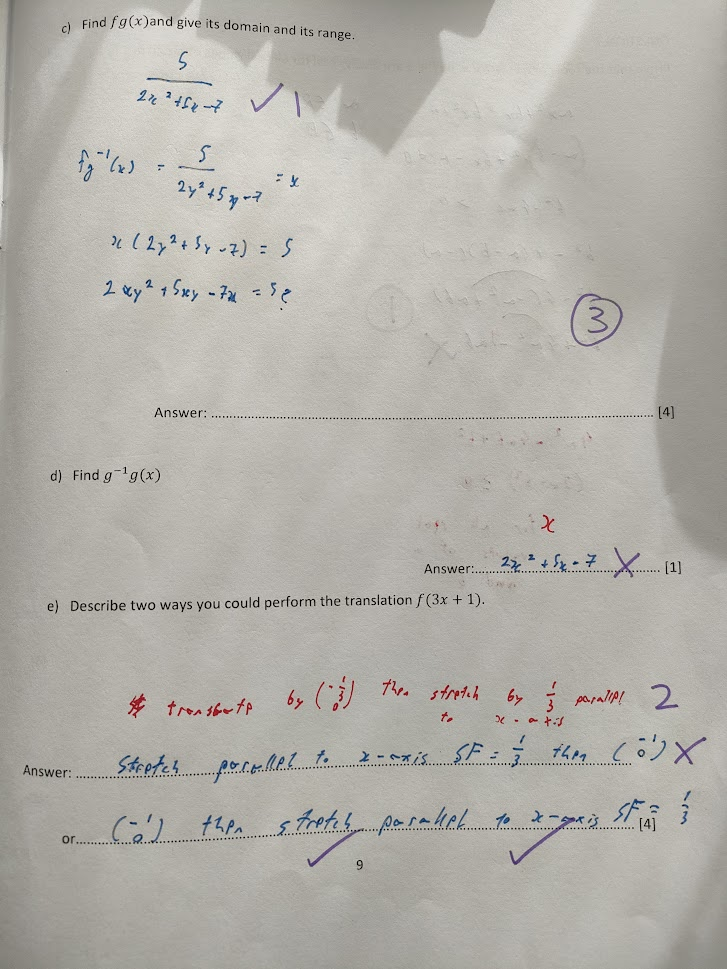 c) Find fg(x)and give its domain and its range.
5
2x² + 5x - 7 ✓ 1
fg⁻¹(x) = 5 = x
2y² + 5y - 7
x (2y² + 5y - 7) = 5
2xy² + 5xy - 7x = 5 ?
3
Answer: [4]
d) Find g⁻¹g(x)
x
Answer: 2x² + 5x - 7 ✗ [1]
e) Describe two ways you could perform the translation f(3x + 1).
translate by (-1/3 0) then stretch by 1/3 parallel 2
to x-axis
Answer: Stretch parallel to x-axis SF = 1/3 then (-1 0) ✗
or (-1 0) then stretch parallel to x-axis SF = 1/3 [4]
✓ ✓
9